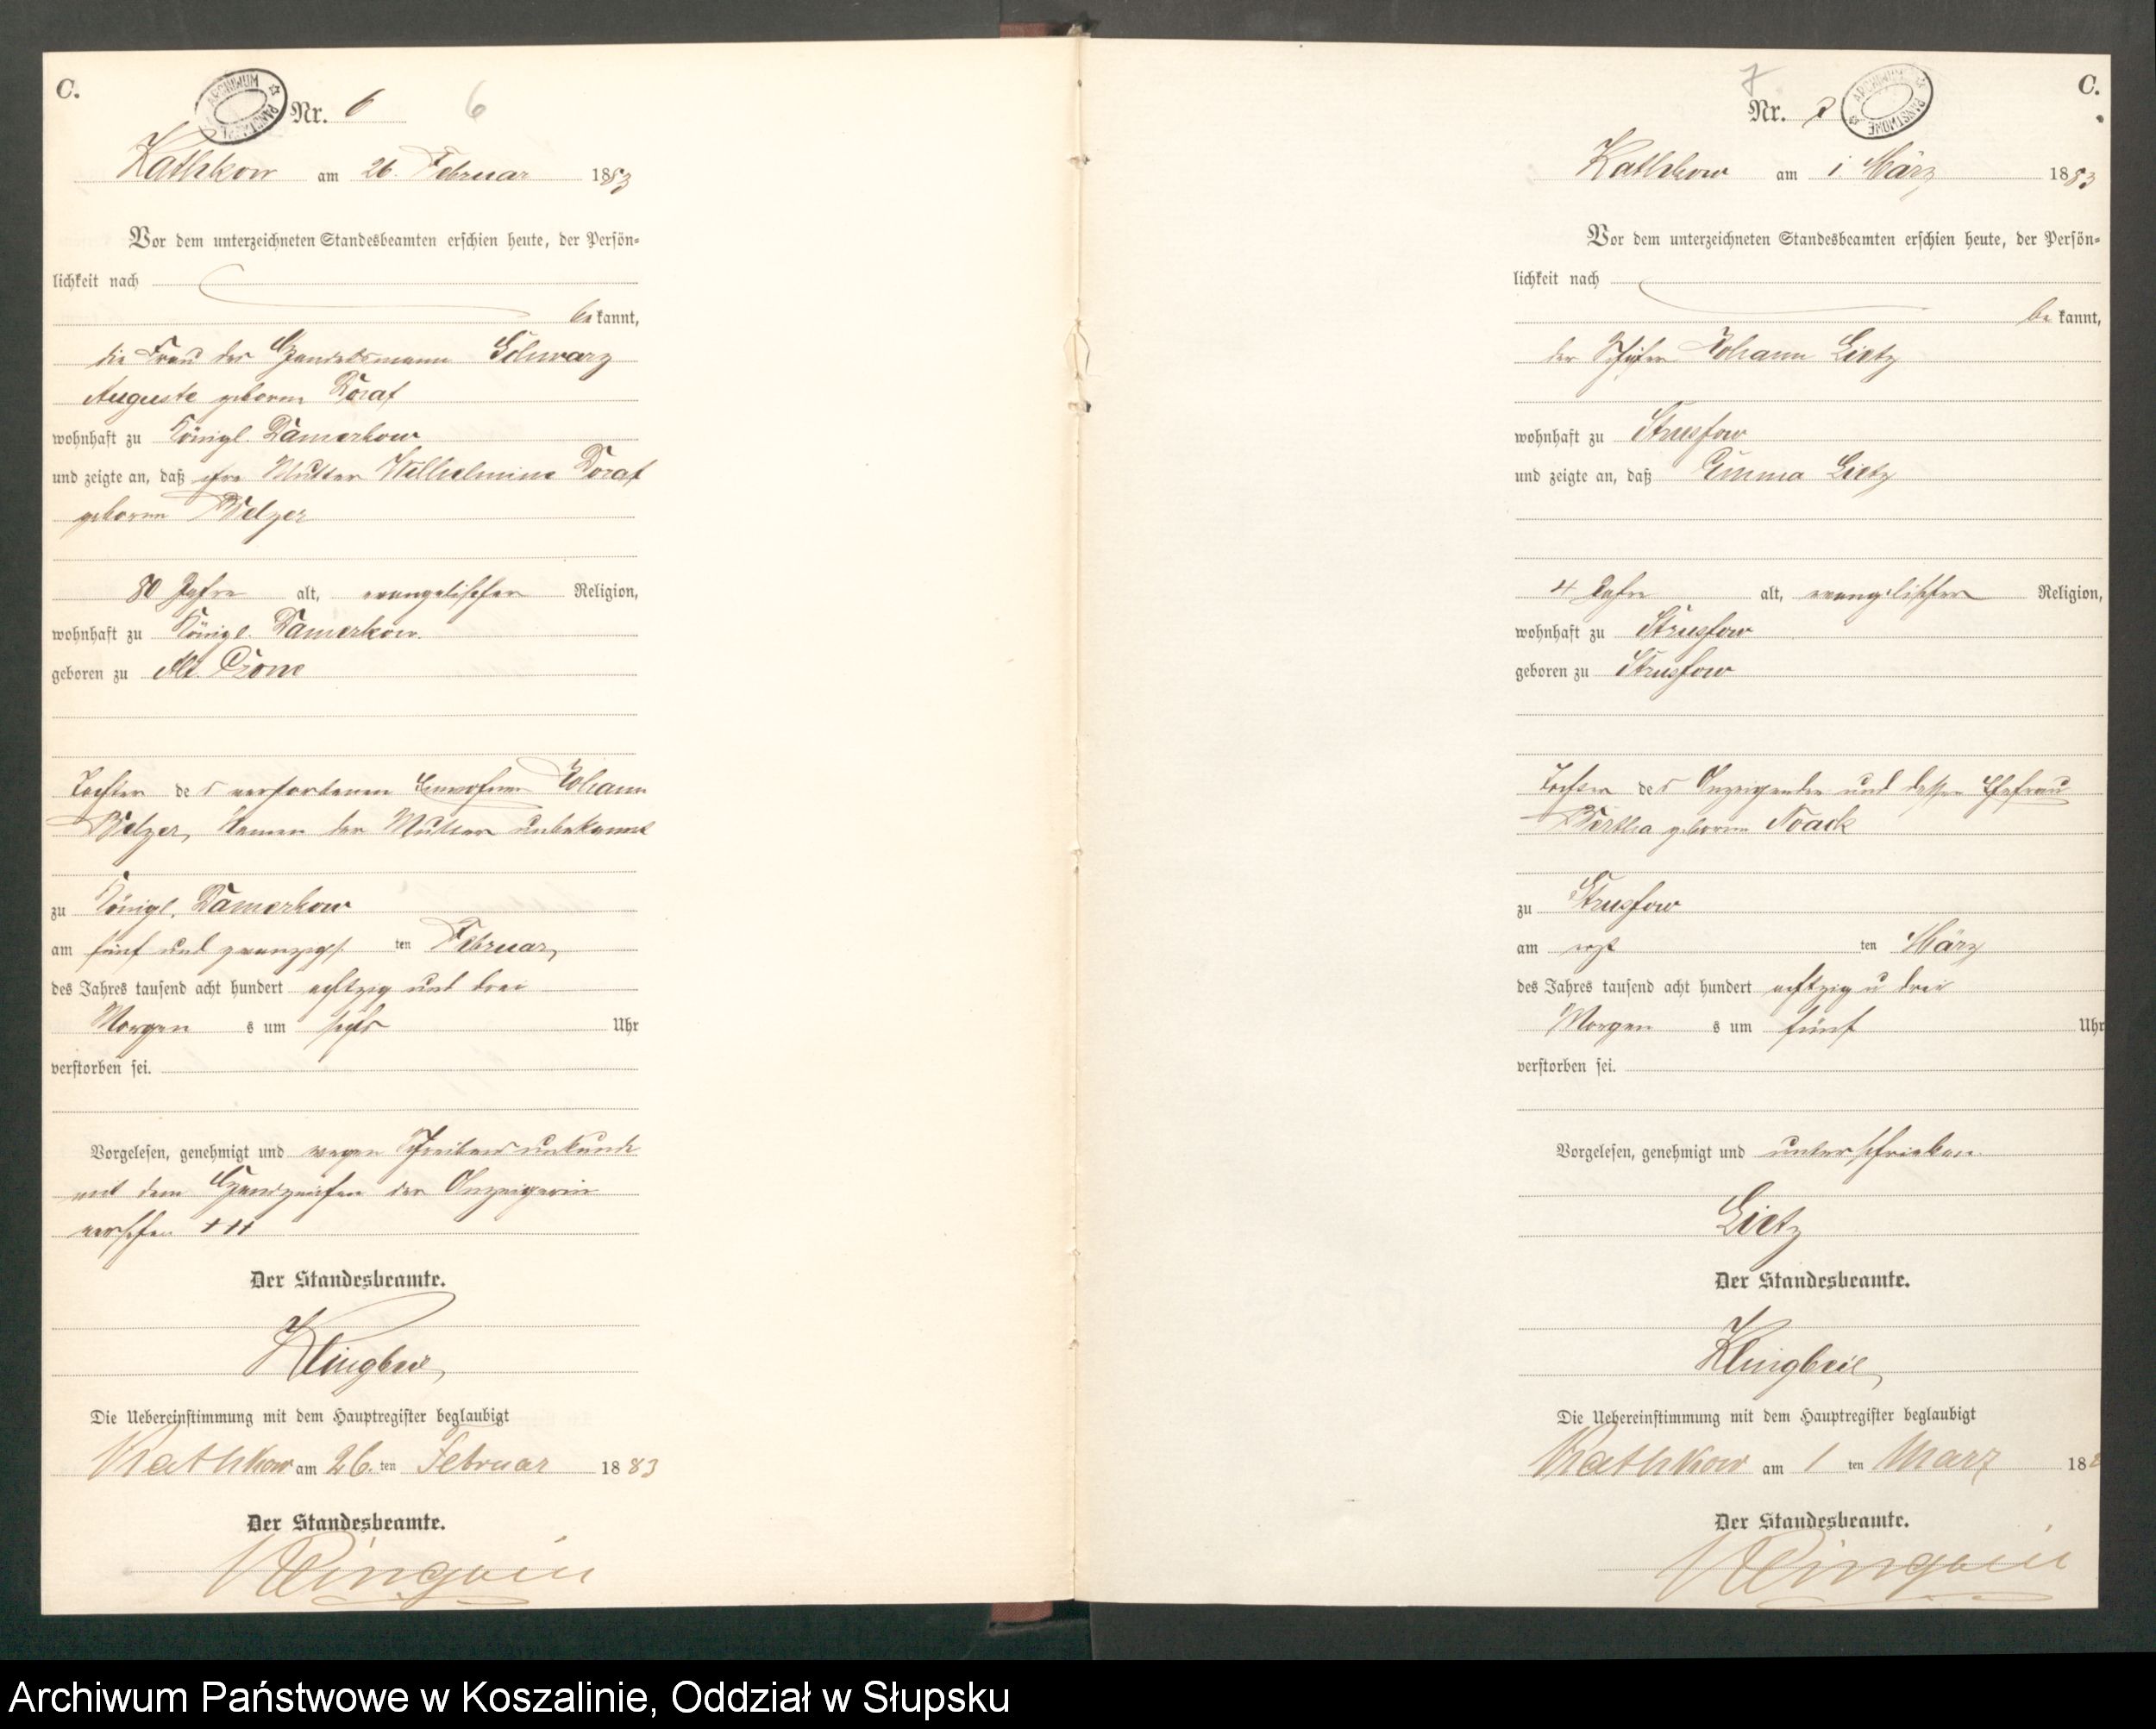 C.
ARCHIWUM PAŃSTWOWE
Nr. 6
6
Kathkow am 26. Februar 1883
Vor dem unterzeichneten Standesbeamten erschien heute, der Persön-
lichkeit nach
bekannt,
die Frau des Handelsmann Schwarz
Auguste geborne Toraf
wohnhaft zu Königl. Damerkow
und zeigte an, daß ihre Mutter Wilhelmine Toraf
geborne Belzer
80 Jahre alt, evangelischer Religion,
wohnhaft zu Königl. Damerkow.
geboren zu Alt. Crone
Tochter des verstorbenen Einwohner Johann
Belzer, Namen der Mutter unbekannt
zu Königl. Damerkow
am fünf und zwanzigsten Februar
des Jahres tausend acht hundert achtzig und drei
Morgens um sechs Uhr
verstorben sei.
Vorgelesen, genehmigt und wegen Schreibensunkunde
mit dem Handzeichen der Anzeigerin
versehen +++
Der Standesbeamte.
Klingbeil
Die Uebereinstimmung mit dem Hauptregister beglaubigt
Kathkow am 26.ten Februar 1883
Der Standesbeamte.
Klingbeil
C.
7
Nr. 7
ARCHIWUM PAŃSTWOWE
Kathkow am 1. März 1883
Vor dem unterzeichneten Standesbeamten erschien heute, der Persön-
lichkeit nach
bekannt,
der Schäfer Johann Lietz
wohnhaft zu Strussow
und zeigte an, daß Emma Lietz
4 Jahre alt, evangelischer Religion,
wohnhaft zu Strussow
geboren zu Strussow
Tochter des Anzeigenden und dessen Ehefrau
Bertha geborne Noack
zu Strussow
am ersten März
des Jahres tausend acht hundert achtzig u drei
Morgens um fünf Uhr
verstorben sei.
Vorgelesen, genehmigt und unterschrieben
Lietz
Der Standesbeamte.
Klingbeil
Die Uebereinstimmung mit dem Hauptregister beglaubigt
Kathkow am 1 ten März 188
Der Standesbeamte.
Klingbeil
Archiwum Państwowe w Koszalinie, Oddział w Słupsku